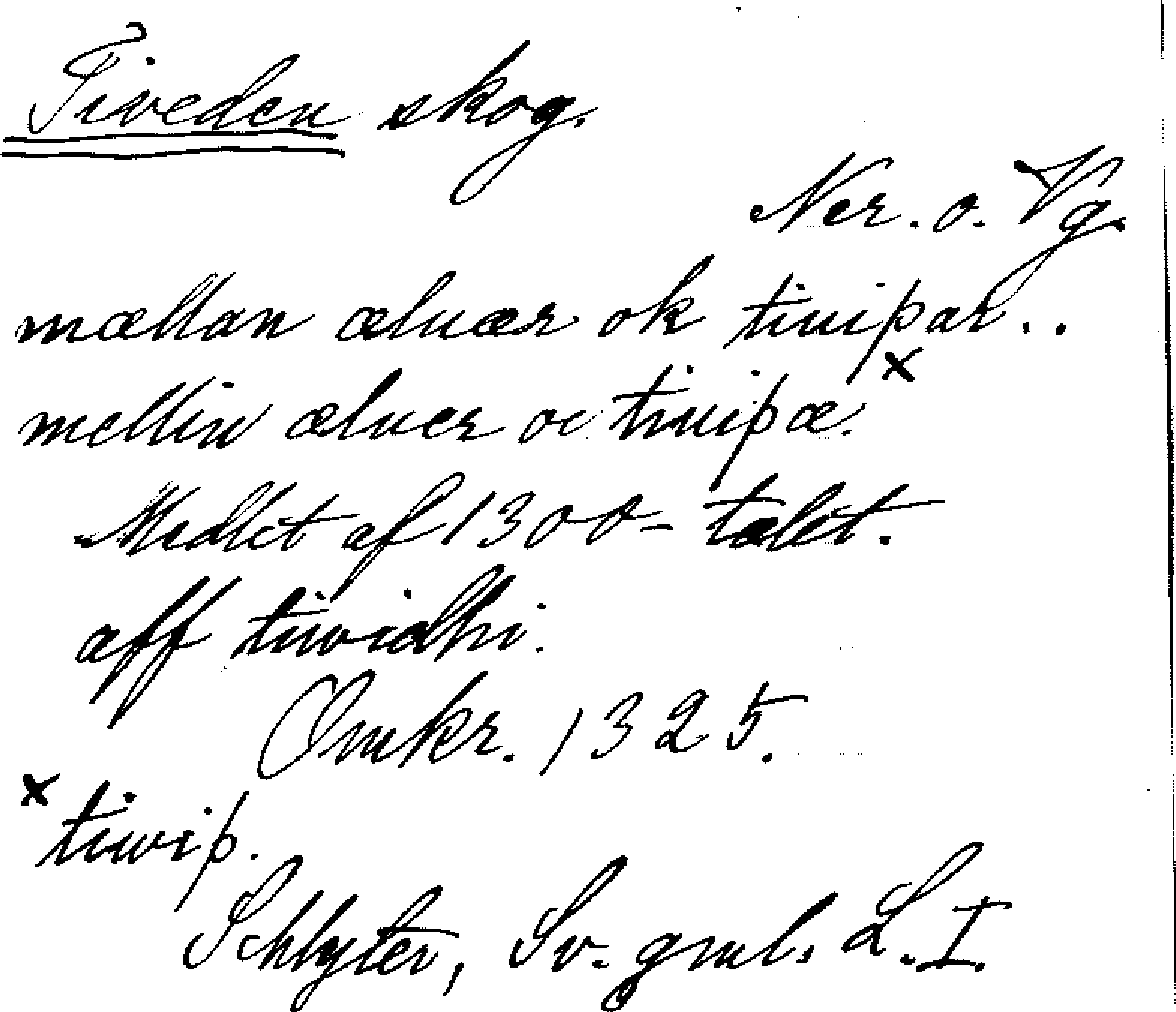 Tiveden skog.
Ner. o. Vg.
mællan æluær ok tiuiþar..
mellin æluer oc tiuiþæ. x
Medlet af 1300-talet.
aff tiwidhi.
Omkr. 1325.
x tiwiþ.
Schlyter, Sv. gml. L. I.